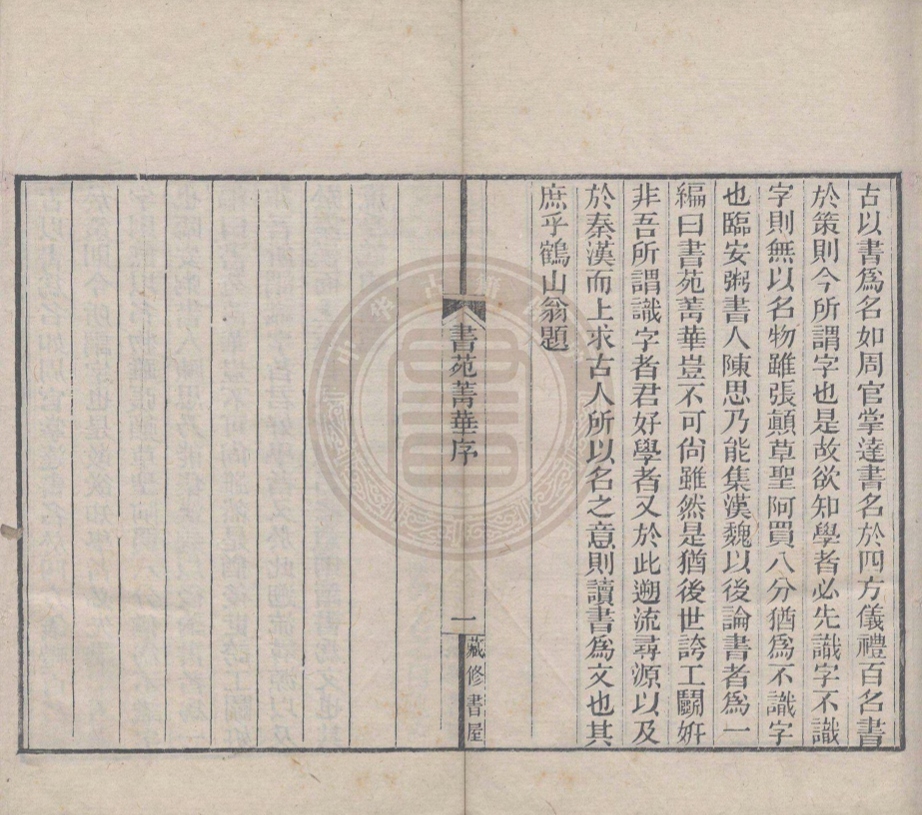 古以書爲名如周官掌達書名於四方儀禮百名書
於策則今所謂字也是故欲知學者必先識字不識
字則無以名物雖張顛草聖阿買八分猶爲不識字
也臨安粥書人陳思乃能集漢魏以後論書者爲一
編曰書苑菁華豈不可尙雖然是猶後世誇工鬭姸
非吾所謂識字者君好學者又於此遡流尋源以及
於秦漢而上求古人所以名之意則讀書爲文也其
庶乎鶴山翁題
書苑菁華序
一
藏修書屋